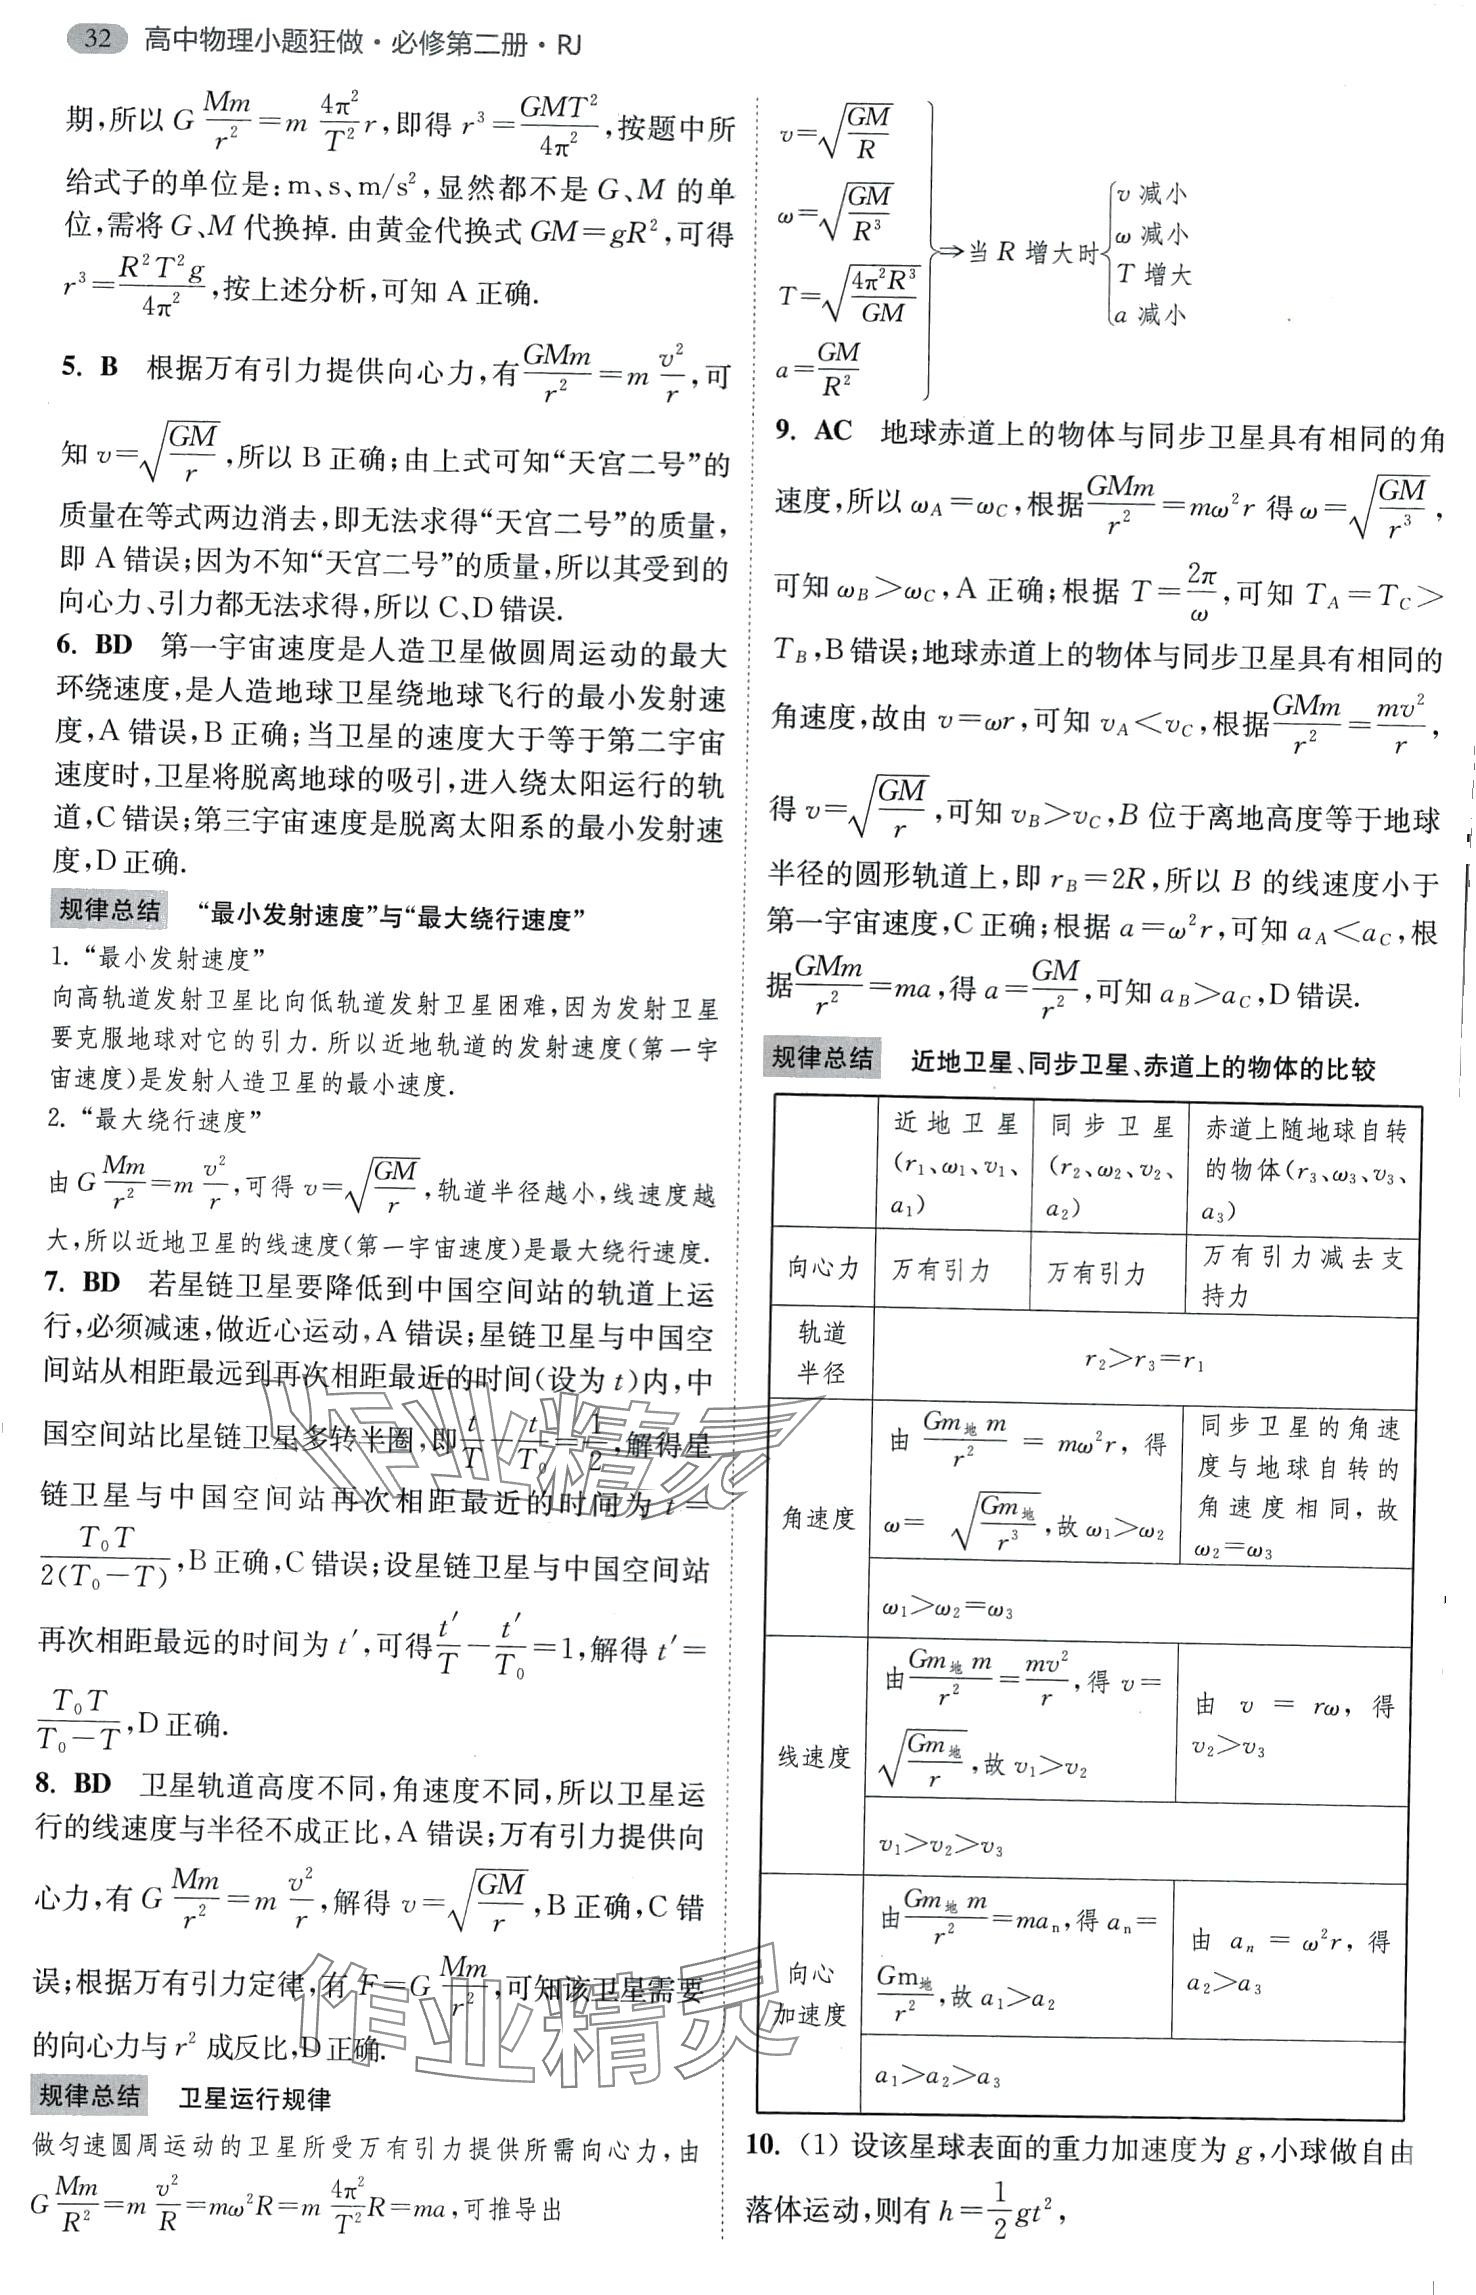 32 高中物理小题狂做·必修第二册·RJ
期,所以 G Mm/r² = m 4π²/T² r,即得 r³ = GMT²/4π²,按题中所
给式子的单位是:m、s、m/s²,显然都不是 G、M 的单
位,需将 G、M 代换掉. 由黄金代换式 GM=gR²,可得
r³ = R²T²g/4π²,按上述分析,可知 A 正确.
5. B 根据万有引力提供向心力,有 GMm/r² = m v²/r,可
知 v=√(GM/r),所以 B 正确;由上式可知“天宫二号”的
质量在等式两边消去,即无法求得“天宫二号”的质量,
即 A 错误;因为不知“天宫二号”的质量,所以其受到的
向心力、引力都无法求得,所以 C、D 错误.
6. BD 第一宇宙速度是人造卫星做圆周运动的最大
环绕速度,是人造地球卫星绕地球飞行的最小发射速
度,A 错误,B 正确;当卫星的速度大于等于第二宇宙
速度时,卫星将脱离地球的吸引,进入绕太阳运行的轨
道,C 错误;第三宇宙速度是脱离太阳系的最小发射速
度,D 正确.
规律总结 “最小发射速度”与“最大绕行速度”
1. “最小发射速度”
向高轨道发射卫星比向低轨道发射卫星困难,因为发射卫星
要克服地球对它的引力. 所以近地轨道的发射速度(第一宇
宙速度)是发射人造卫星的最小速度.
2. “最大绕行速度”
由 G Mm/r² = m v²/r,可得 v=√(GM/r),轨道半径越小,线速度越
大,所以近地卫星的线速度(第一宇宙速度)是最大绕行速度.
7. BD 若星链卫星要降低到中国空间站的轨道上运
行,必须减速,做近心运动,A 错误;星链卫星与中国空
间站从相距最远到再次相距最近的时间(设为 t)内,中
国空间站比星链卫星多转半圈,即 t/T − t/T₀ = 1/2,解得星
链卫星与中国空间站再次相距最近的时间为 t=
T₀T/2(T₀−T),B 正确,C 错误;设星链卫星与中国空间站
再次相距最远的时间为 t′,可得 t′/T − t′/T₀ =1,解得 t′=
T₀T/(T₀−T),D 正确.
8. BD 卫星轨道高度不同,角速度不同,所以卫星运
行的线速度与半径不成正比,A 错误;万有引力提供向
心力,有 G Mm/r² = m v²/r,解得 v=√(GM/r),B 正确,C 错
误;根据万有引力定律,有 F=G Mm/r²,可知该卫星需要
的向心力与 r² 成反比,D 正确.
规律总结 卫星运行规律
做匀速圆周运动的卫星所受万有引力提供所需向心力,由
G Mm/R² = m v²/R = mω²R = m 4π²/T² R = ma,可推导出
v=√(GM/R)
ω=√(GM/R³)
T=√(4π²R³/GM)
a=GM/R²
⇒当 R 增大时
v 减小
ω 减小
T 增大
a 减小
9. AC 地球赤道上的物体与同步卫星具有相同的角
速度,所以 ωA=ωC,根据 GMm/r² = mω²r 得 ω=√(GM/r³),
可知 ωB>ωC,A 正确;根据 T=2π/ω,可知 TA=TC>
TB,B 错误;地球赤道上的物体与同步卫星具有相同的
角速度,故由 v=ωr,可知 vA<vC,根据 GMm/r² = mv²/r,
得 v=√(GM/r),可知 vB>vC,B 位于离地高度等于地球
半径的圆形轨道上,即 rB=2R,所以 B 的线速度小于
第一宇宙速度,C 正确;根据 a=ω²r,可知 aA<aC,根
据 GMm/r² = ma,得 a=GM/r²,可知 aB>aC,D 错误.
规律总结 近地卫星、同步卫星、赤道上的物体的比较
近地卫星(r₁、ω₁、v₁、a₁)
同步卫星(r₂、ω₂、v₂、a₂)
赤道上随地球自转的物体(r₃、ω₃、v₃、a₃)
向心力
万有引力
万有引力
万有引力减去支持力
轨道半径
r₂>r₃=r₁
角速度
由 Gm地m/r² = mω²r,得 ω= √(Gm地/r³),故 ω₁>ω₂
同步卫星的角速度与地球自转的角速度相同,故 ω₂=ω₃
ω₁>ω₂=ω₃
线速度
由 Gm地m/r² = mv²/r,得 v=√(Gm地/r),故 v₁>v₂
由 v = rω,得 v₂>v₃
v₁>v₂>v₃
向心加速度
由 Gm地m/r² = maₙ,得 aₙ= Gm地/r²,故 a₁>a₂
由 aₙ = ω²r,得 a₂>a₃
a₁>a₂>a₃
10. (1) 设该星球表面的重力加速度为 g,小球做自由
落体运动,则有 h=1/2 gt²,
作业精灵
作业精灵